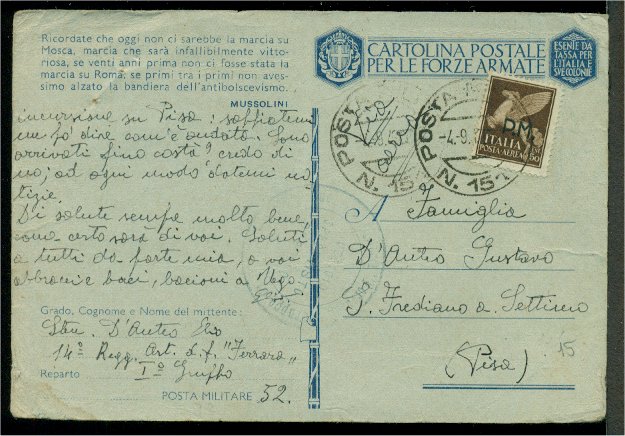 Ricordate che oggi non ci sarebbe la marcia su
Mosca, marcia che sarà infallibilmente vitto-
riosa, se venti anni prima non ci fosse stata la
marcia su Roma, se primi tra i primi non aves-
simo alzato la bandiera dell'antibolscevismo.
MUSSOLINI
CARTOLINA POSTALE
PER LE FORZE ARMATE
ESENTE DA
TASSA PER
L'ITALIA E
SVE COLONIE
incursione su Pisa: sappiatemi
un po' dire com'è andata. Sono
arrivati fino costà? credo di
no; ad ogni modo datemi no
tizie.
Di salute sempre molto bene,
come certo sarà di voi. Saluti
a tutti da parte mia, a voi
abbracci e baci, bacioni a
Grado, Cognome e Nome del mittente:
D'Anteo
14° Regg. Art. d. f. "Ferrara"
Reparto I° Gruppo
POSTA MILITARE 52.
POSTA
N. 15
POSTA
-4.9
N. 151
P.M.
ITALIA
POSTA AEREA
A Famiglia
D'Anteo Gustavo
S. Frediano a Settimo
(Pisa)
15